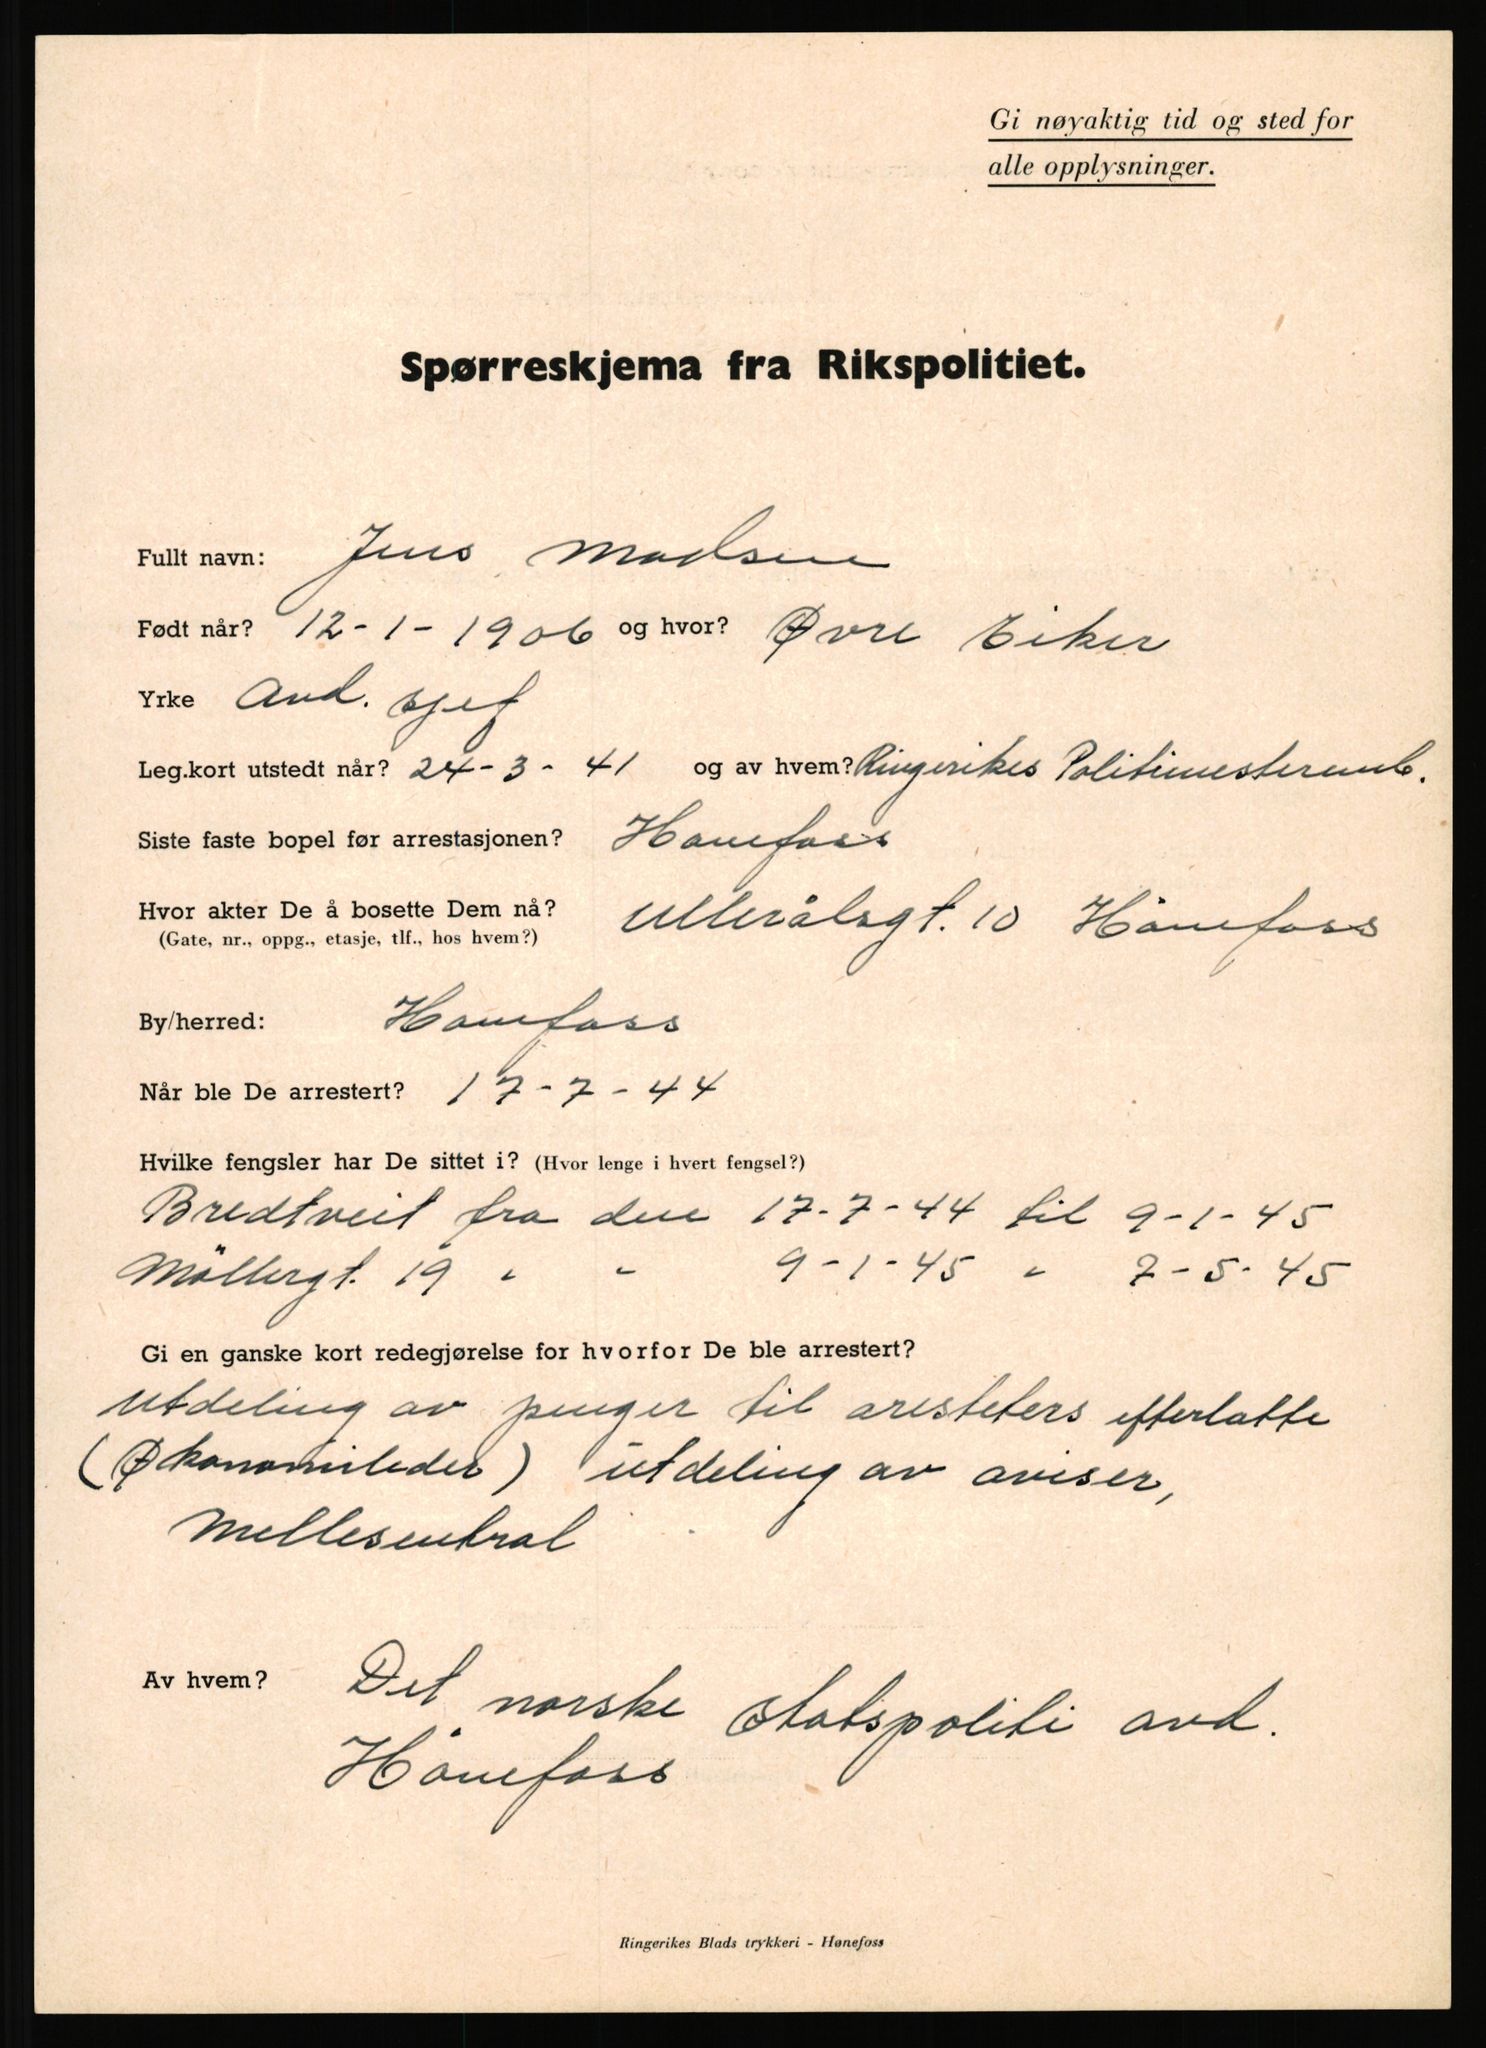 Gi nøyaktig tid og sted for
alle opplysninger.
Spørreskjema fra Rikspolitiet.
Fullt navn: Jens Madsen
Født når? 12-1-1906 og hvor? Øvre Eiker
Yrke Avd. sjef
Leg.kort utstedt når? 24-3-41 og av hvem? Ringerikes Politimesteremb.
Siste faste bopel før arrestasjonen? Hönefoss
Hvor akter De å bosette Dem nå? Ullerålsgt. 10 Hönefoss
(Gate, nr., oppg., etasje, tlf., hos hvem?)
By/herred: Hönefoss
Når ble De arrestert? 17-7-44
Hvilke fengsler har De sittet i? (Hvor lenge i hvert fengsel?)
Bredtveit fra den 17-7-44 til 9-1-45
Möllergt. 19 " " 9-1-45 " 7-5-45
Gi en ganske kort redegjørelse for hvorfor De ble arrestert?
Utdeling av penger til aresteters efterlatte
(Økonomileder) utdeling av aviser,
Mellesentral
Av hvem? Det norske Statspoliti avd.
Hönefoss
Ringerikes Blads trykkeri - Hønefoss